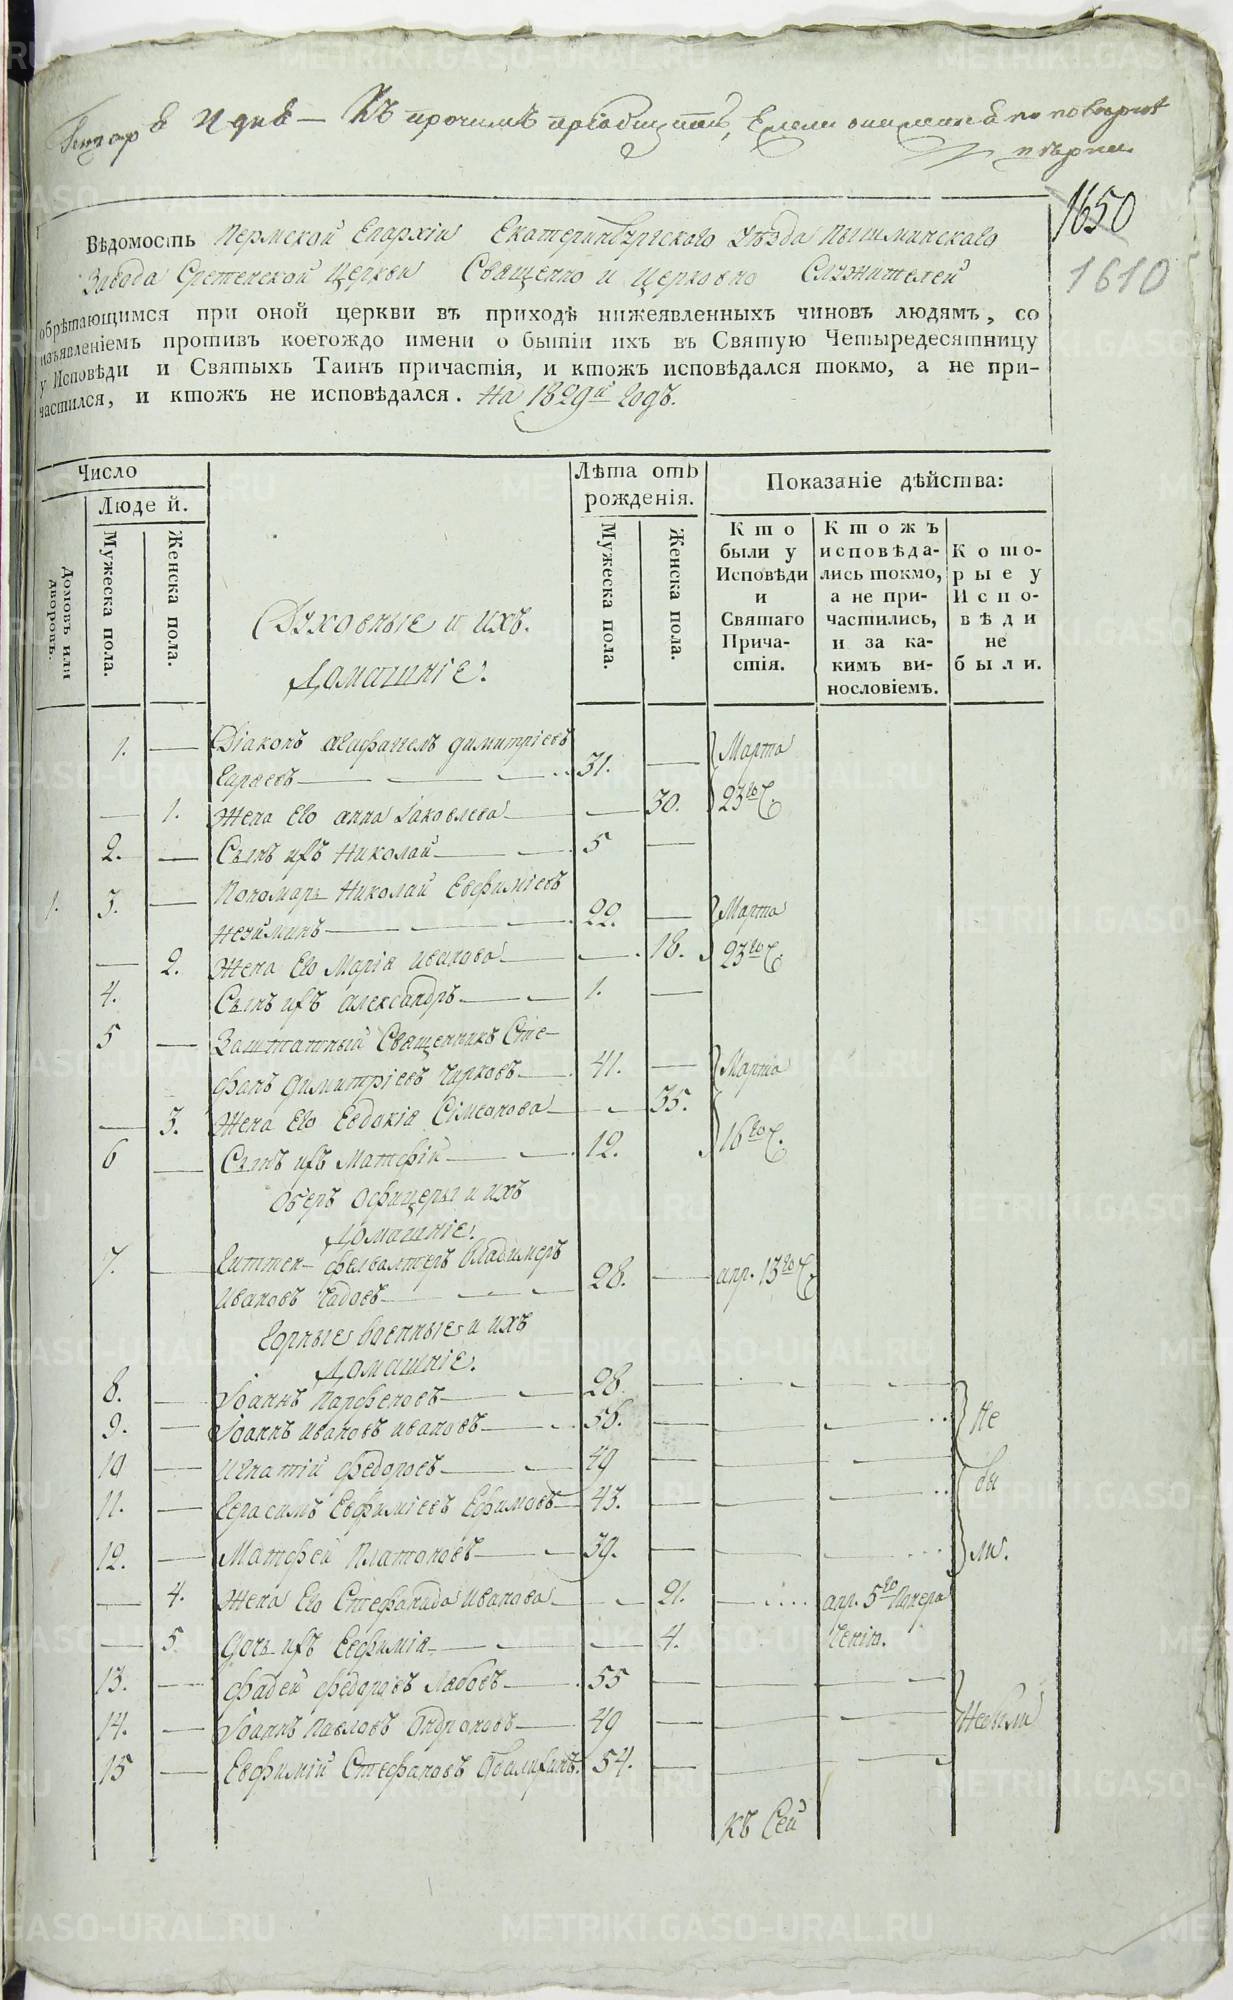 Генвар 2 дня — Къ прочимъ приобщить,
1650
1610
Вѣдомость Пермской Епархіи Екатеринбургскаго Уѣзда Пышминскаго
Завода Сретенской Церкви Священно и Церковно Служителей
обрѣтающимся при оной церкви въ приходѣ нижеявленныхъ чиновъ людямъ, со
изъявленіемъ противъ коегождо имени о бытіи ихъ въ Святую Четыредесятницу
у Исповѣди и Святыхъ Таинъ причастія, и ктожъ исповѣдался токмо, а не при-
частился, и ктожъ не исповѣдался. На 1829й годъ.
Число
Людей.
Домовъ или дворовъ.
Мужеска пола.
Женска пола.
Духовные и ихъ
домашніе.
Лѣта отъ
рожденія.
Мужеска пола.
Женска пола.
Показаніе дѣйства:
Кто
были у
Исповѣди
и
Святаго
Прича-
стія.
Ктожъ
исповѣда-
лись токмо,
а не при-
частились,
и за ка-
кимъ ви-
нословіемъ.
Кото-
рые у
Испо-
вѣди
не
были.
1. — Діаконъ Агафангелъ Димитріевъ
31. — Марта
— 1. Жена Его Анна Іаковлева — 30. 23го ч.
2. — Сынъ ихъ Николай — 5 —
1. 3. — Пономарь Николай Евфиміевъ
22. — Марта
— 2. Жена Его Марія Иванова — 18. 23го ч.
4. Сынъ ихъ Александръ — 1. —
5 — Заштатный Священникъ Сте-
фанъ Димитріевъ Чирковъ — 41. — Марта
— 3. Жена Его Евдокія Сімеонова — 35.
6 — Сынъ ихъ Матфій — 12. 16го ч.
Оберъ Офицеры и ихъ
домашніе.
7. — Гиттен-фервалтеръ Владимеръ
Ивановъ — 28. — апр. 13го ч.
Горные военные и ихъ
домашніе.
8. — Іоаннъ Парфеновъ — 28. —
9. — Іоаннъ Ивановъ Ивановъ — 56. — Не
10 — Игнатій Федоровъ — 49 —
11. — Герасимъ Евфиміевъ Ефимовъ — 43. — бы
12. — Матфей Платоновъ — 39. — ли.
— 4. Жена Его Стефанида Иванова — 21. — апр. 5го
— 5. Дочь ихъ Евфимія — 4.
13. — Фадей Федоровъ — 55 —
14. — Іоаннъ Павловъ — 49 — Не были
15 — Евфимій Стефановъ — 54. —
Къ Сей